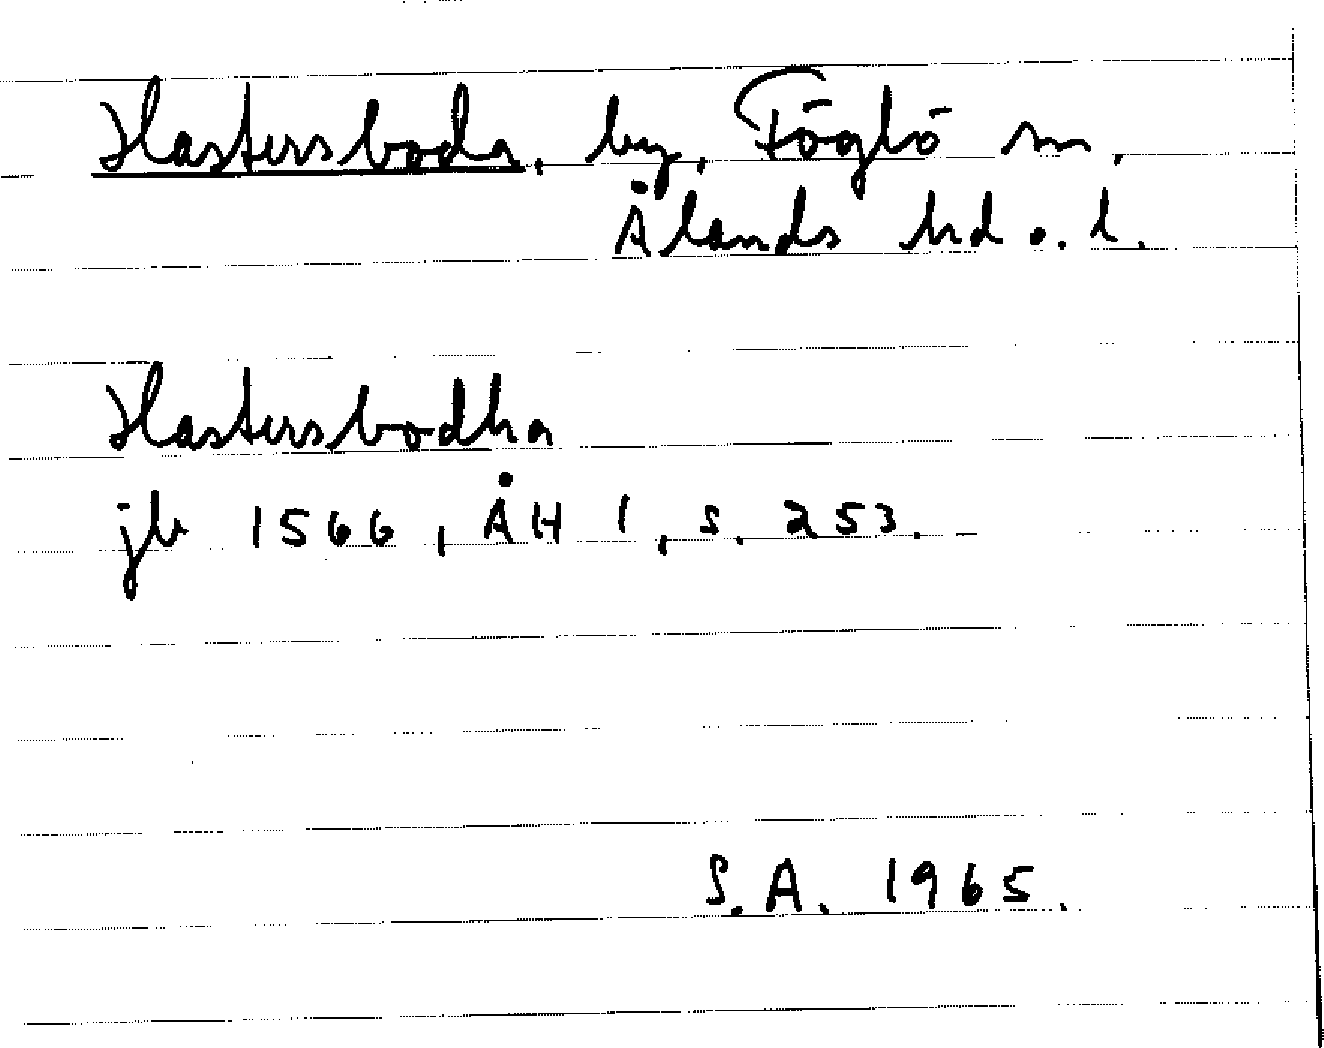 Hastersboda, by, Föglö sn,
Ålands hd o. l.
Hastersbodha
jb 1566, ÅH 1, s. 253.
S.A. 1965.